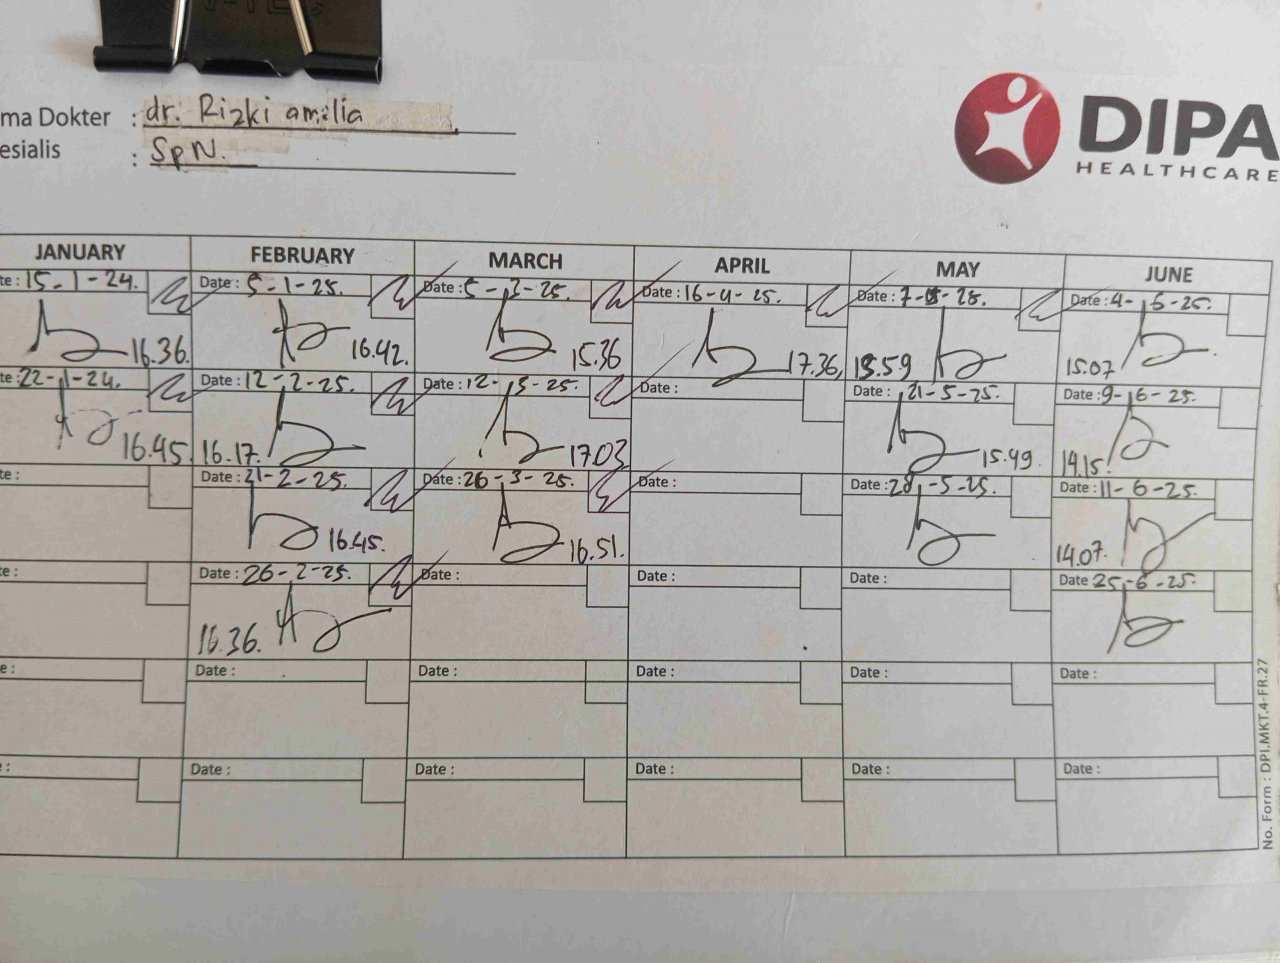 ma Dokter : dr. Rizki amilia
esialis : SpN.
DIPA
HEALTHCARE
JANUARY FEBRUARY MARCH APRIL MAY JUNE
te: 15-1-24. Date : 5-1-25. Date : 5-3-25. Date : 16-4-25. Date : 7-5-25. Date : 4-6-25.
16.36. 16.42. 15.36 17.36, 13.59 15.07
te: 22-1-24. Date : 12-2-25. Date : 12-3-25. Date : Date : 21-5-25. Date : 9-6-25.
16.45. 16.17. 17.03 15.49. 14.15.
te: Date : 21-2-25. Date : 26-3-25. Date : Date : 28-5-25. Date : 11-6-25.
16.45. 16.51. 14.07.
te: Date : 26-2-25. Date : Date : Date : Date 25-6-25.
16.36.
e : Date : Date : Date : Date : Date :
: Date : Date : Date : Date : Date :
No. Form : DPI.MKT.4-FR.27